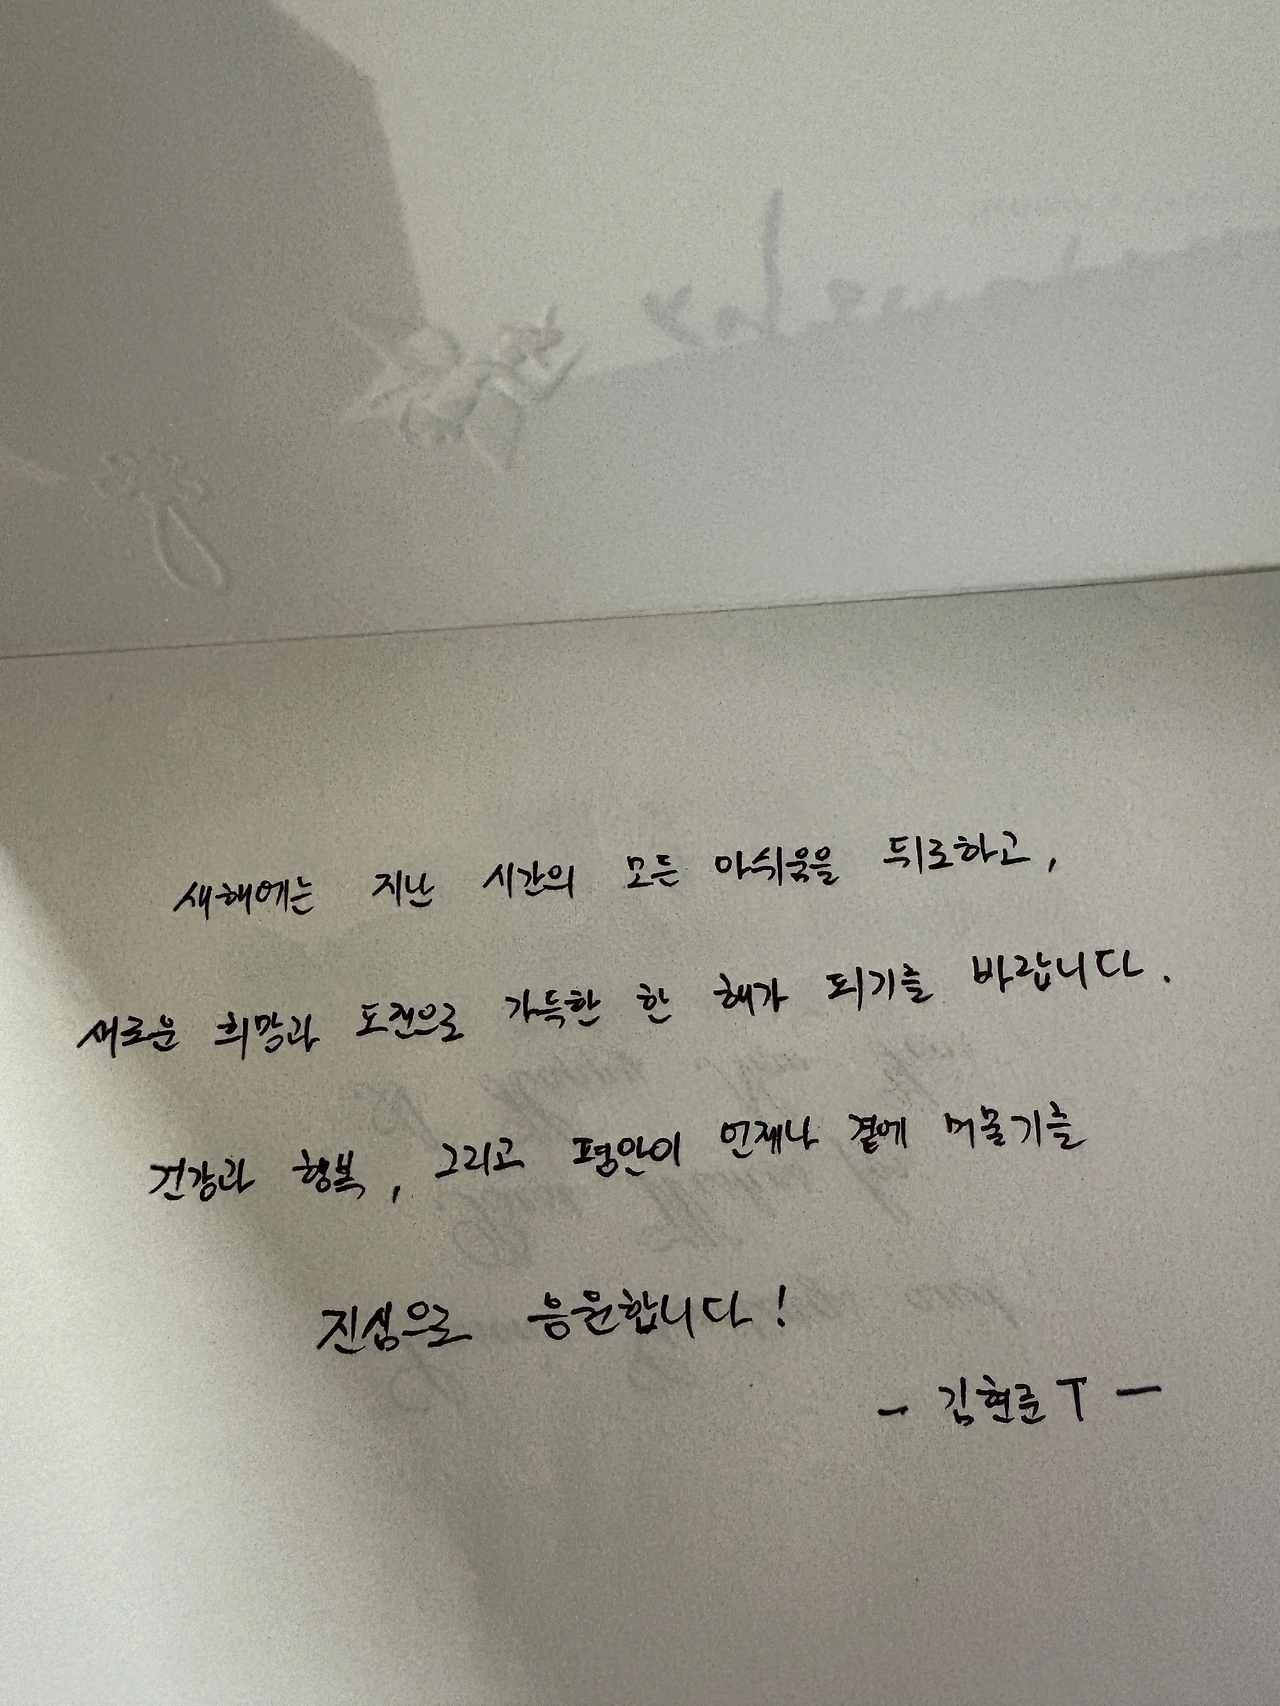 새해에는 지난 시간의 모든 아쉬움을 뒤로하고,
새로운 희망과 도전으로 가득한 한 해가 되기를 바랍니다.
건강과 행복, 그리고 평안이 언제나 곁에 머물기를
진심으로 응원합니다!
- 김현준T -